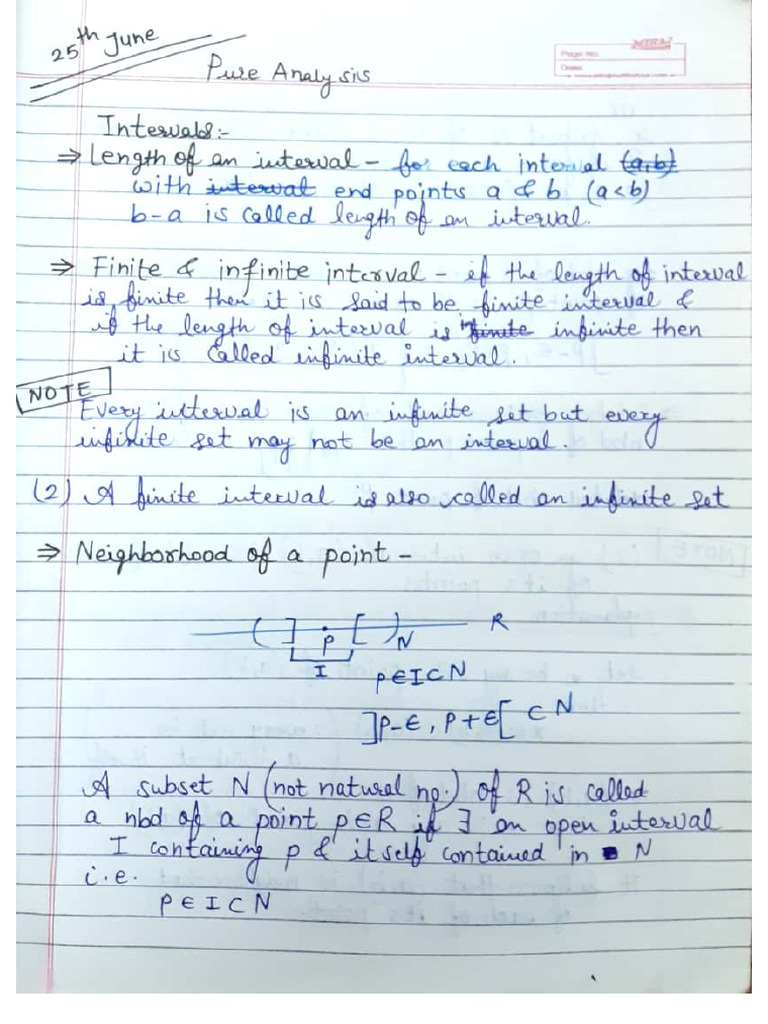 25th June
MITRA
Page No.
Date
Pure Analysis
Intervals:-
⇒ Length of an interval - for each interval (a,b)
with interval end points a & b (a<b)
b-a is called length of an interval.
⇒ Finite & infinite interval - if the length of interval
is finite then it is said to be finite interval &
if the length of interval is finite infinite then
it is called infinite interval.
NOTE
Every interval is an infinite set but every
infinite set may not be an interval.
(2) A finite interval is also called an infinite set
⇒ Neighborhood of a point -
( ] p [ ) N R
I
p∈I⊂N
]p-ϵ, p+ϵ[ ⊂ N
A subset N (not natural no.) of R is called
a nbd of a point p∈R if ∃ an open interval
I containing p & itself contained in N
i.e.
p ∈ I ⊂ N